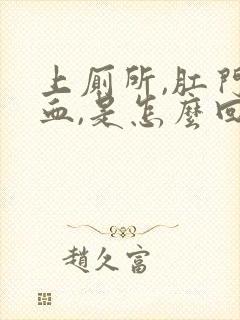 上厠所,肛門
血,是怎麼回
趙久富